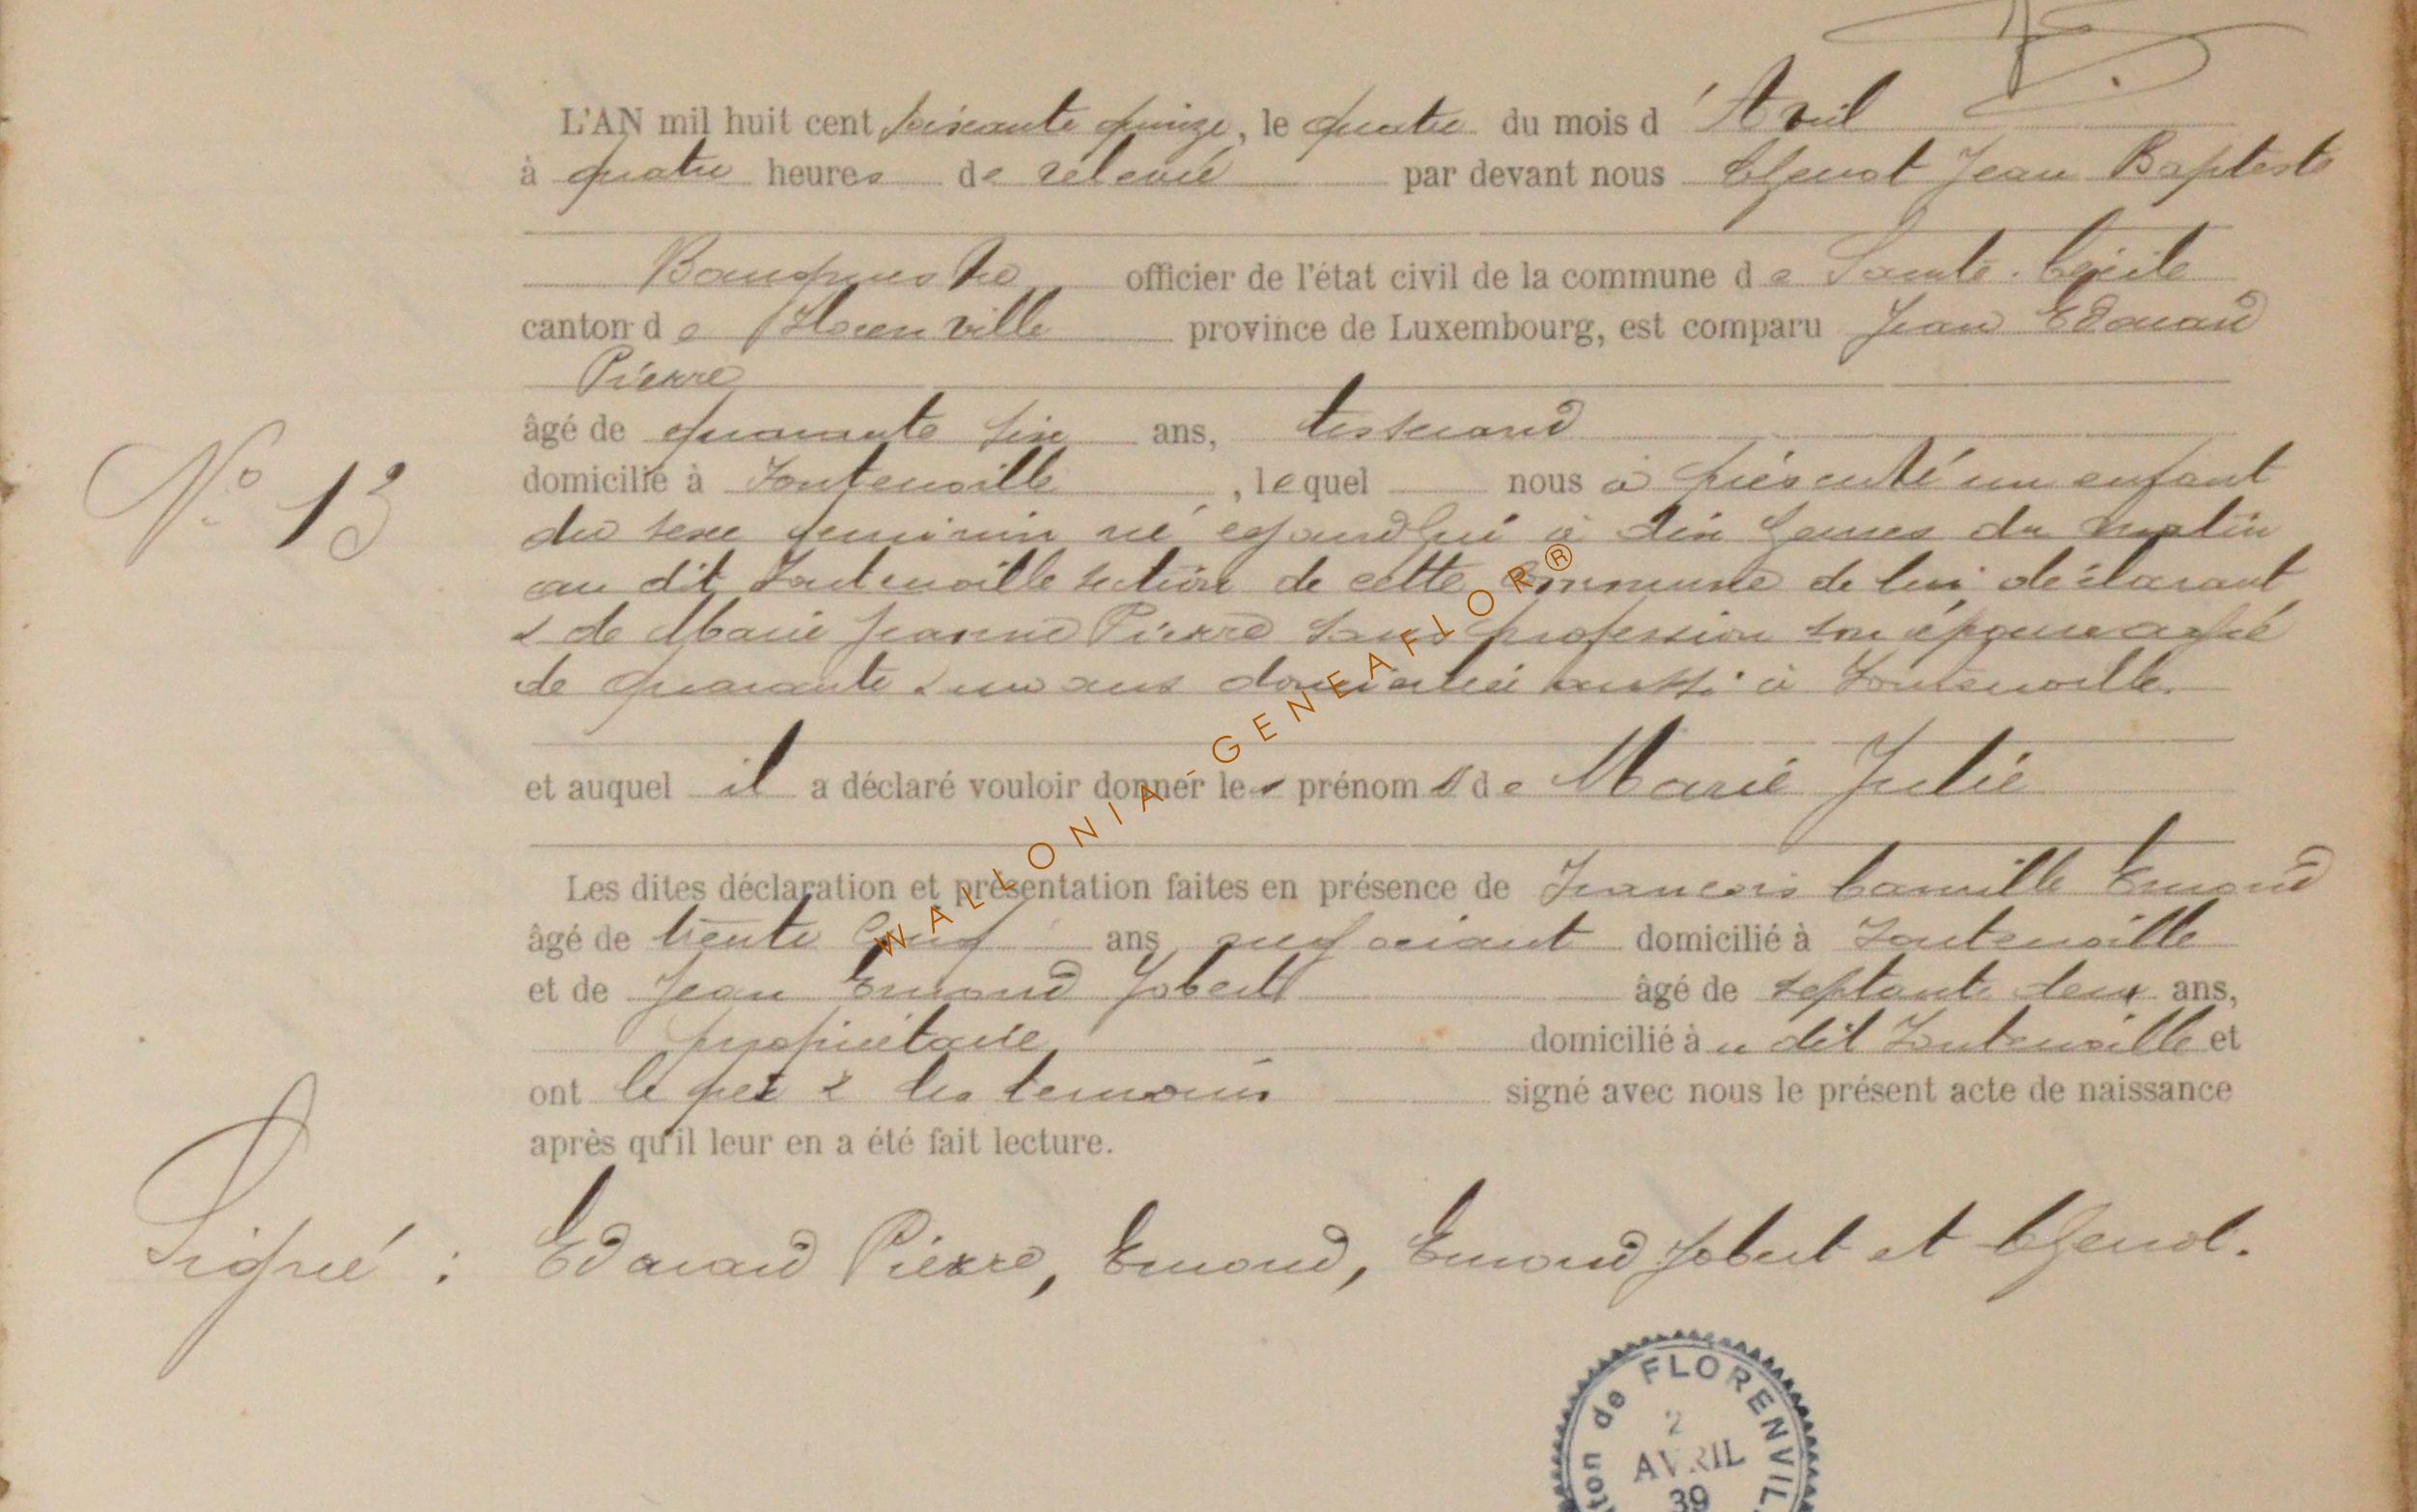 L'AN mil huit cent soixante quinze, le quatre du mois d'Avril
à quatre heures de relevée par devant nous Chenot Jean Baptiste
Bourgmestre officier de l'état civil de la commune de Sainte-Cécile
canton de Florenville province de Luxembourg, est comparu Jean Edouard
Pierre
âgé de quarante six ans, tisserand
domicilié à Fontenoille, lequel nous a présenté un enfant
N° 13
du sexe feminin né cejourd'hui à dix heures du matin
au dit Fontenoille section de cette commune de lui déclarant
& de Marie Jeanne Pierre sans profession son épouse agée
de quarante & un ans domiciliée aussi à Fontenoille.
et auquel il a déclaré vouloir donner les prénoms de Marie Julie
Les dites déclaration et présentation faites en présence de Francois Camille Emond
âgé de trente ans negociant domicilié à Fontenoille
et de Jean Emond Jobert âgé de septante deux ans,
propriétaire domicilié au dit Fontenoille et
ont le père & les temoins signé avec nous le présent acte de naissance
après qu'il leur en a été fait lecture.
Signé : Edouard Pierre, Emond, Emond Jobert et Chenot.
WALLONIA-GENEAFLOR®
ton de FLORENVIL
2
AVRIL
39